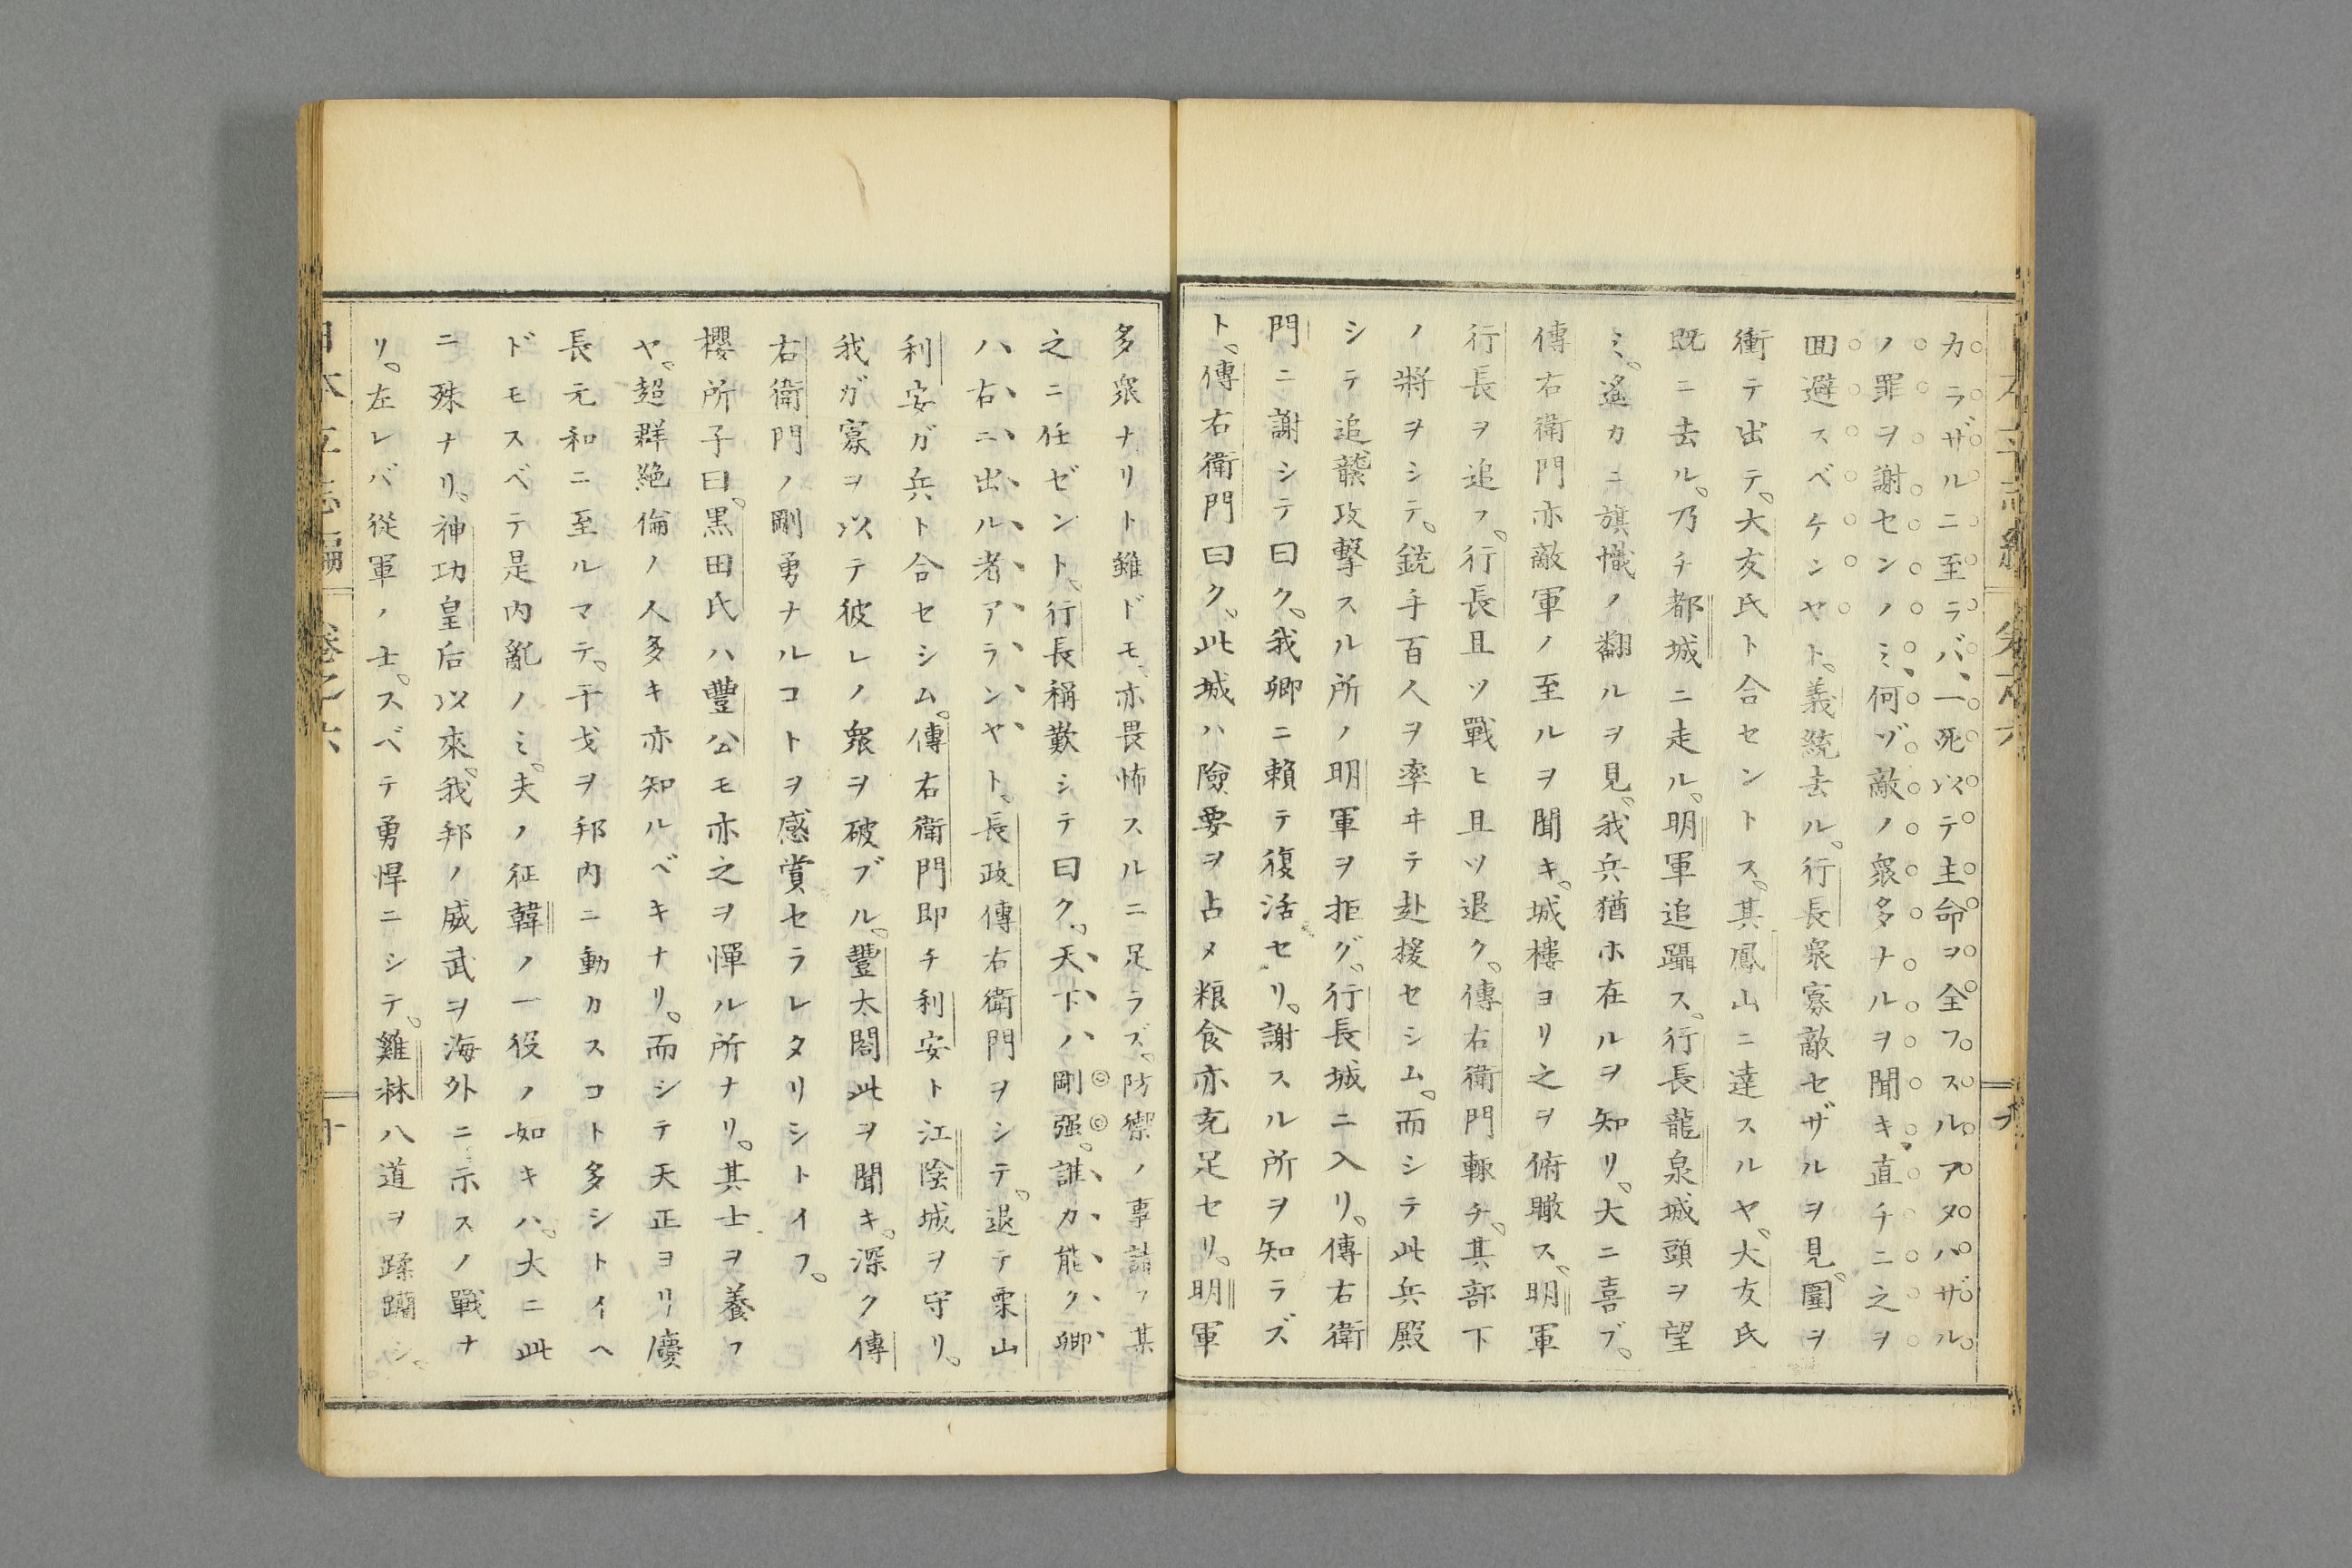 カラザルニ至ラバ、一死以テ主命ヲ全フスルアタハザル
ノ罪ヲ謝センノミ、何ゾ敵ノ衆多ナルヲ聞キ、直チニ之ヲ
回避スベケンヤト。義統去ル。行長衆寡敵セザルヲ見、圍ヲ
衝テ出テ。大友氏ト合セントス。其鳳山ニ達スルヤ。大友氏
既ニ去ル。乃チ都城ニ走ル。明軍追躡ス。行長龍泉城頭ヲ望
ミ。遙カニ旗幟ノ翻ルヲ見。我兵猶ホ在ルヲ知リ。大ニ喜ブ。
傳右衛門亦敵軍ノ至ルヲ聞キ。城樓ヨリ之ヲ俯瞰ス。明軍
行長ヲ追フ。行長且ツ戰ヒ且ツ退ク。傳右衛門輙チ。其部下
ノ將ヲシテ。銃手百人ヲ率ヰテ赴援セシム。而シテ此兵殿
シテ追襲攻擊スル所ノ明軍ヲ拒グ。行長城ニ入リ。傳右衛
門ニ謝シテ曰ク。我卿ニ賴テ復活セリ。謝スル所ヲ知ラズ
ト。傳右衛門曰ク。此城ハ險要ヲ占メ粮食亦充足セリ。明軍
多衆ナリト雖ドモ、亦畏怖スルニ足ラズ。防禦ノ事請フ其
之ニ任ゼント。行長稱歎シテ曰ク。天下ノ剛强。誰カ能ク卿
ハ右ニ出ル者アランヤト。長政傳右衛門ヲシテ。退テ栗山
利安ガ兵ト合セシム。傳右衛門即チ利安ト江陰城ヲ守リ。
我ガ寡ヲ以テ彼レノ衆ヲ破ブル。豐太閤此ヲ聞キ。深ク傳
右衛門ノ剛勇ナルコトヲ感賞セラレタリシトイフ。
櫻所子曰。黒田氏ハ豐公モ亦之ヲ憚ル所ナリ。其士ヲ養フ
ヤ。超群絶倫ノ人多キ亦知ルベキナリ。而シテ天正ヨリ慶
長元和ニ至ルマテ。干戈ヲ邦内ニ動カスコト多シトイヘ
ドモスベテ是内亂ノミ。夫ノ征韓ノ一役ノ如キハ。大ニ此
ニ殊ナリ。神功皇后以來。我邦ノ威武ヲ海外ニ示スノ戰ナ
リ。左レバ從軍ノ士。スベテ勇悍ニシテ。雞林八道ヲ蹂躪シ。
日本立志編 卷之六 十